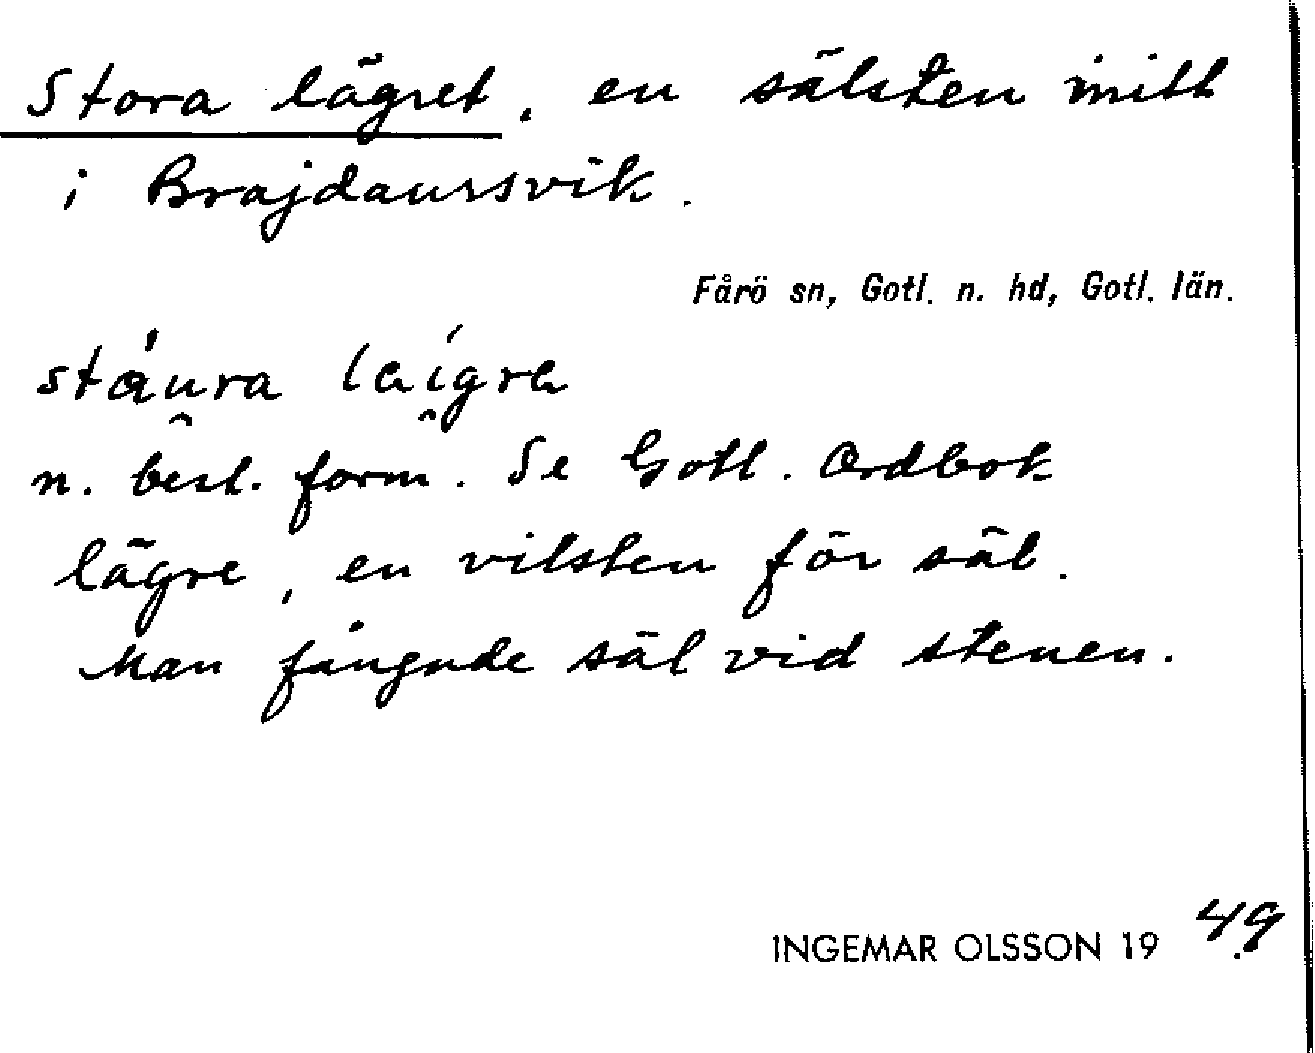 Stora lägret, en sälsten mitt
i Brajdaursvik.
Fårö sn, Gotl. n. hd, Gotl. län.
stáu̯ra laí̯gra
n. best. form. Se Gotl. Ordbok
lägre, en vilsten för säl.
Man fångade säl vid stenen.
INGEMAR OLSSON 1949.